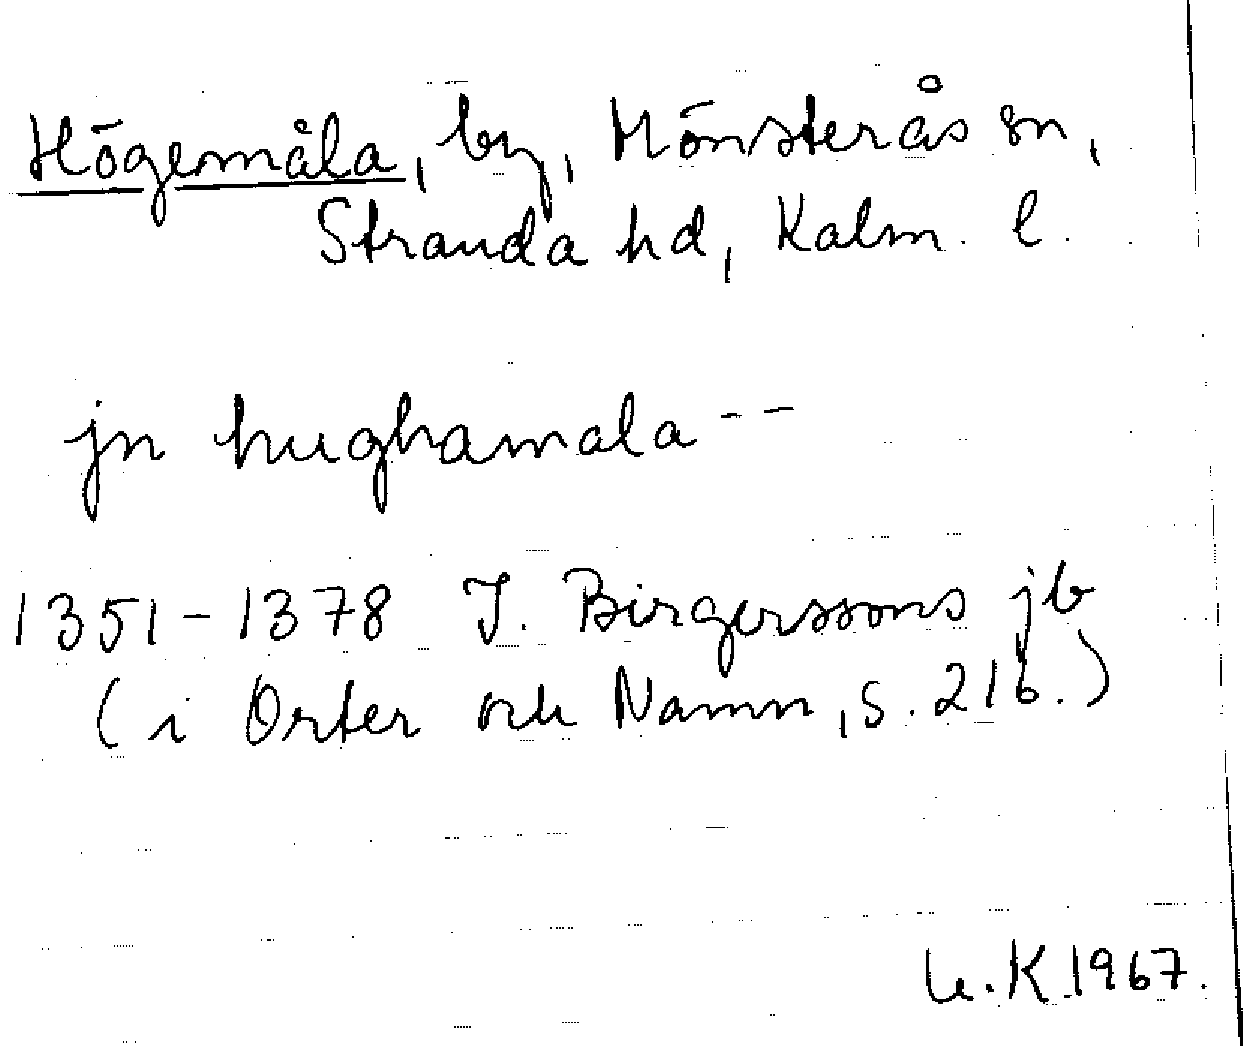 Högemåla, by, Mönsterås sn,
Stranda hd, Kalm. l.
jn hughamala --
1351-1378 J. Birgerssons jb
(i Orter och Namn, s. 216.)
U.K 1967.